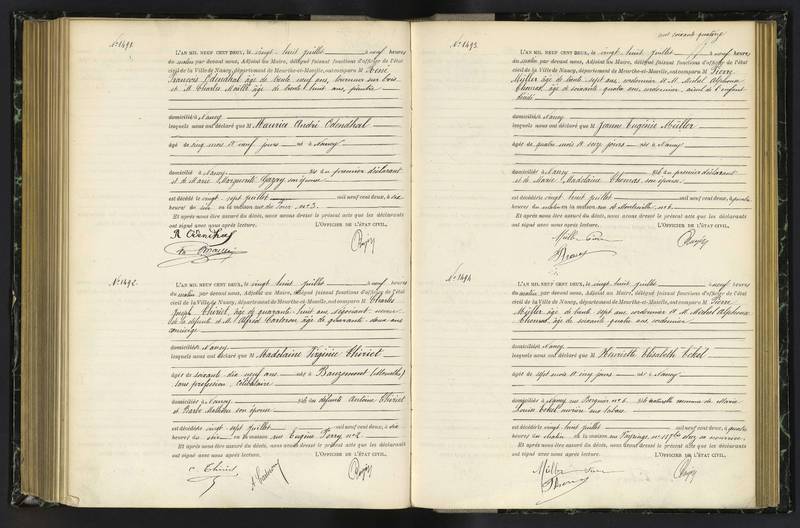 N° 1491.
L'AN MIL NEUF CENT DEUX, le vingt huit juillet à neuf heures
du matin par devant nous, Adjoint au Maire, délégué faisant fonctions d'officier de l'état
civil de la Ville de Nancy, département de Meurthe-et-Moselle, ont comparu M René
François Odendhal âgé de trente neuf ans, tourneur sur bois
et M Charles âgé de trente huit ans, peintre
domiciliés à Nancy
lesquels nous ont déclaré que M Maurice André Odendhal
âgé de cinq mois et neuf jours né à Nancy
domicilié à Nancy fils du premier déclarant
et de Marie Marguerite son épouse
est décédé le vingt sept juillet mil neuf cent deux, à six
heures du soir en la maison rue n° 3.
Et après nous être assuré du décès, nous avons dressé le présent acte que les déclarants
ont signé avec nous après lecture. L'OFFICIER DE L'ÉTAT CIVIL,
R Odendhal
N° 1492.
L'AN MIL NEUF CENT DEUX, le vingt huit juillet à neuf heures
du matin par devant nous, Adjoint au Maire, délégué faisant fonctions d'officier de l'état
civil de la Ville de Nancy, département de Meurthe-et-Moselle, ont comparu M Charles
Joseph Thiriet, âgé de quarante huit ans négociant neveu
de la défunte et M Alfred âgé de quarante deux ans
domiciliés à Nancy
lesquels nous ont déclaré que M Madelaine Virginie Thiriet
âgée de soixante dix neuf ans née à Bauzemont (Meurthe)
sans profession, célibataire
domiciliée à Nancy fille des défunts Antoine Thiriet
et Barbe Mathieu son épouse
est décédée vingt sept juillet mil neuf cent deux, à six
heures du soir en la maison rue Eugène Ferry n° 2
Et après nous être assuré du décès, nous avons dressé le présent acte que les déclarants
ont signé avec nous après lecture. L'OFFICIER DE L'ÉTAT CIVIL,
C Thiriet
cent soixante quatorze
N° 1493.
L'AN MIL NEUF CENT DEUX, le vingt huit juillet à neuf heures
du matin par devant nous, Adjoint au Maire, délégué faisant fonctions d'officier de l'état
civil de la Ville de Nancy, département de Meurthe-et-Moselle, ont comparu M Pierre
Müller âgé de trente sept ans, cordonnier et M Michel Alphonse
Thomas, âgé de soixante quatre ans, cordonnier, aïeul de l'enfant
décédé
domiciliés à Nancy
lesquels nous ont déclaré que M Jeanne Eugénie Müller
âgée de quatre mois et onze jours née à Nancy
domiciliée à Nancy fille du premier déclarant
et de Marie Madelaine Thomas, son épouse
est décédée vingt huit juillet mil neuf cent deux, à quatre
heures du matin en la maison rue n° 6
Et après nous être assuré du décès, nous avons dressé le présent acte que les déclarants
ont signé avec nous après lecture. L'OFFICIER DE L'ÉTAT CIVIL,
Müller Pierre
Thomas
N° 1494
L'AN MIL NEUF CENT DEUX, le vingt huit juillet à neuf heures
du matin par devant nous, Adjoint au Maire, délégué faisant fonctions d'officier de l'état
civil de la Ville de Nancy, département de Meurthe-et-Moselle, ont comparu M Pierre
Müller âgé de trente sept ans, cordonnier et M Michel Alphonse
Thomas, âgé de soixante quatre ans cordonnier
domiciliés à Nancy
lesquels nous ont déclaré que M Henriette Elisabeth Eckel
âgée de sept mois et cinq jours née à Nancy
domiciliée à Nancy, rue n° 6 fille naturelle reconnue de Marie
Louise Eckel ouvrière aux tabacs
est décédée vingt huit juillet mil neuf cent deux, à quatre
heures du matin en la maison rue n° chez sa nourrice
Et après nous être assuré du décès, nous avons dressé le présent acte que les déclarants
ont signé avec nous après lecture. L'OFFICIER DE L'ÉTAT CIVIL,
Müller Pierre
Thomas